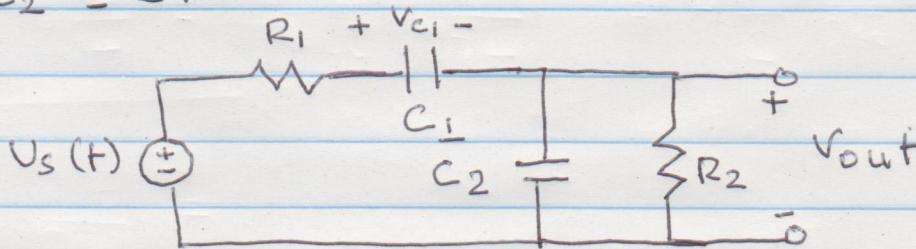 R1 + Vc1 -
C1
Us(t) ± C2 R2 + Vout -